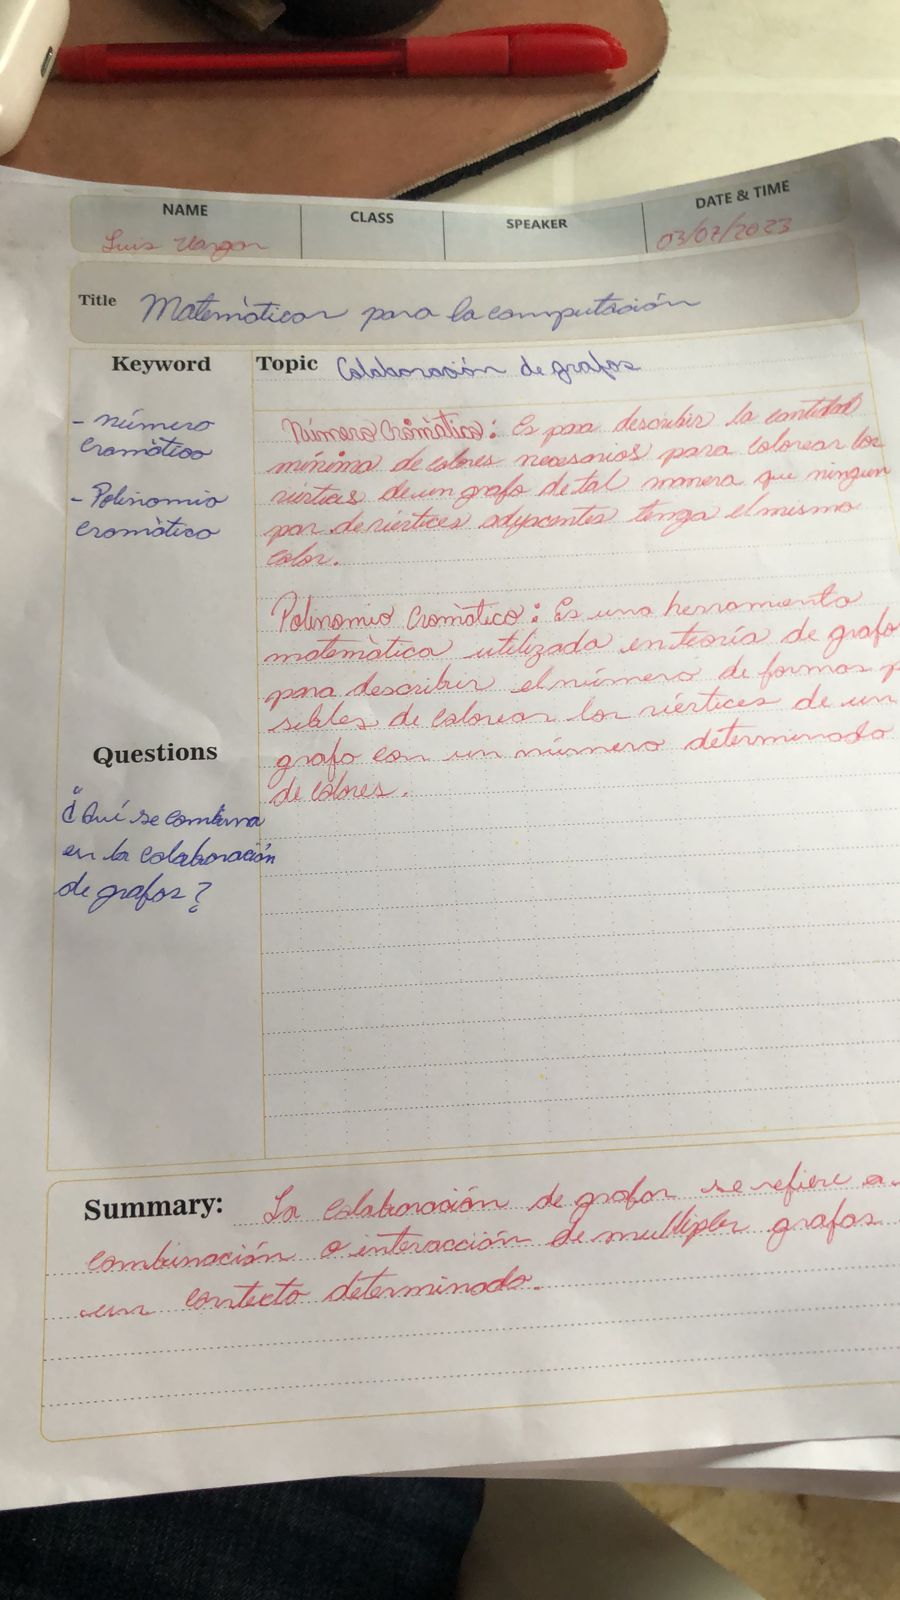 NAME CLASS SPEAKER DATE & TIME
Luis Vargas 03/07/2023
Title Matemàticas para la computación
Keyword
- número
cromàtico
- Polinomio
cromàtico
Questions
¿Qué se combina
en la colaboración
de grafos?
Topic Colaboración de grafos
Número Cromàtico: Es para describir la cantidad
mínima de colores necesarios para colorear los
vértices de un grafo de tal manera que ningun
par de vértices adyacentes tenga el mismo
color.
Polinomio Cromàtico: Es una herramienta
matemàtica utilizada en teoría de grafo
para describir el número de formas p
sibles de colorear los vértices de un
grafo con un número determinado
de colores.
Summary: La colaboración de grafos se refiere a
combinación o interacción de multiples grafos
un contexto determinado.